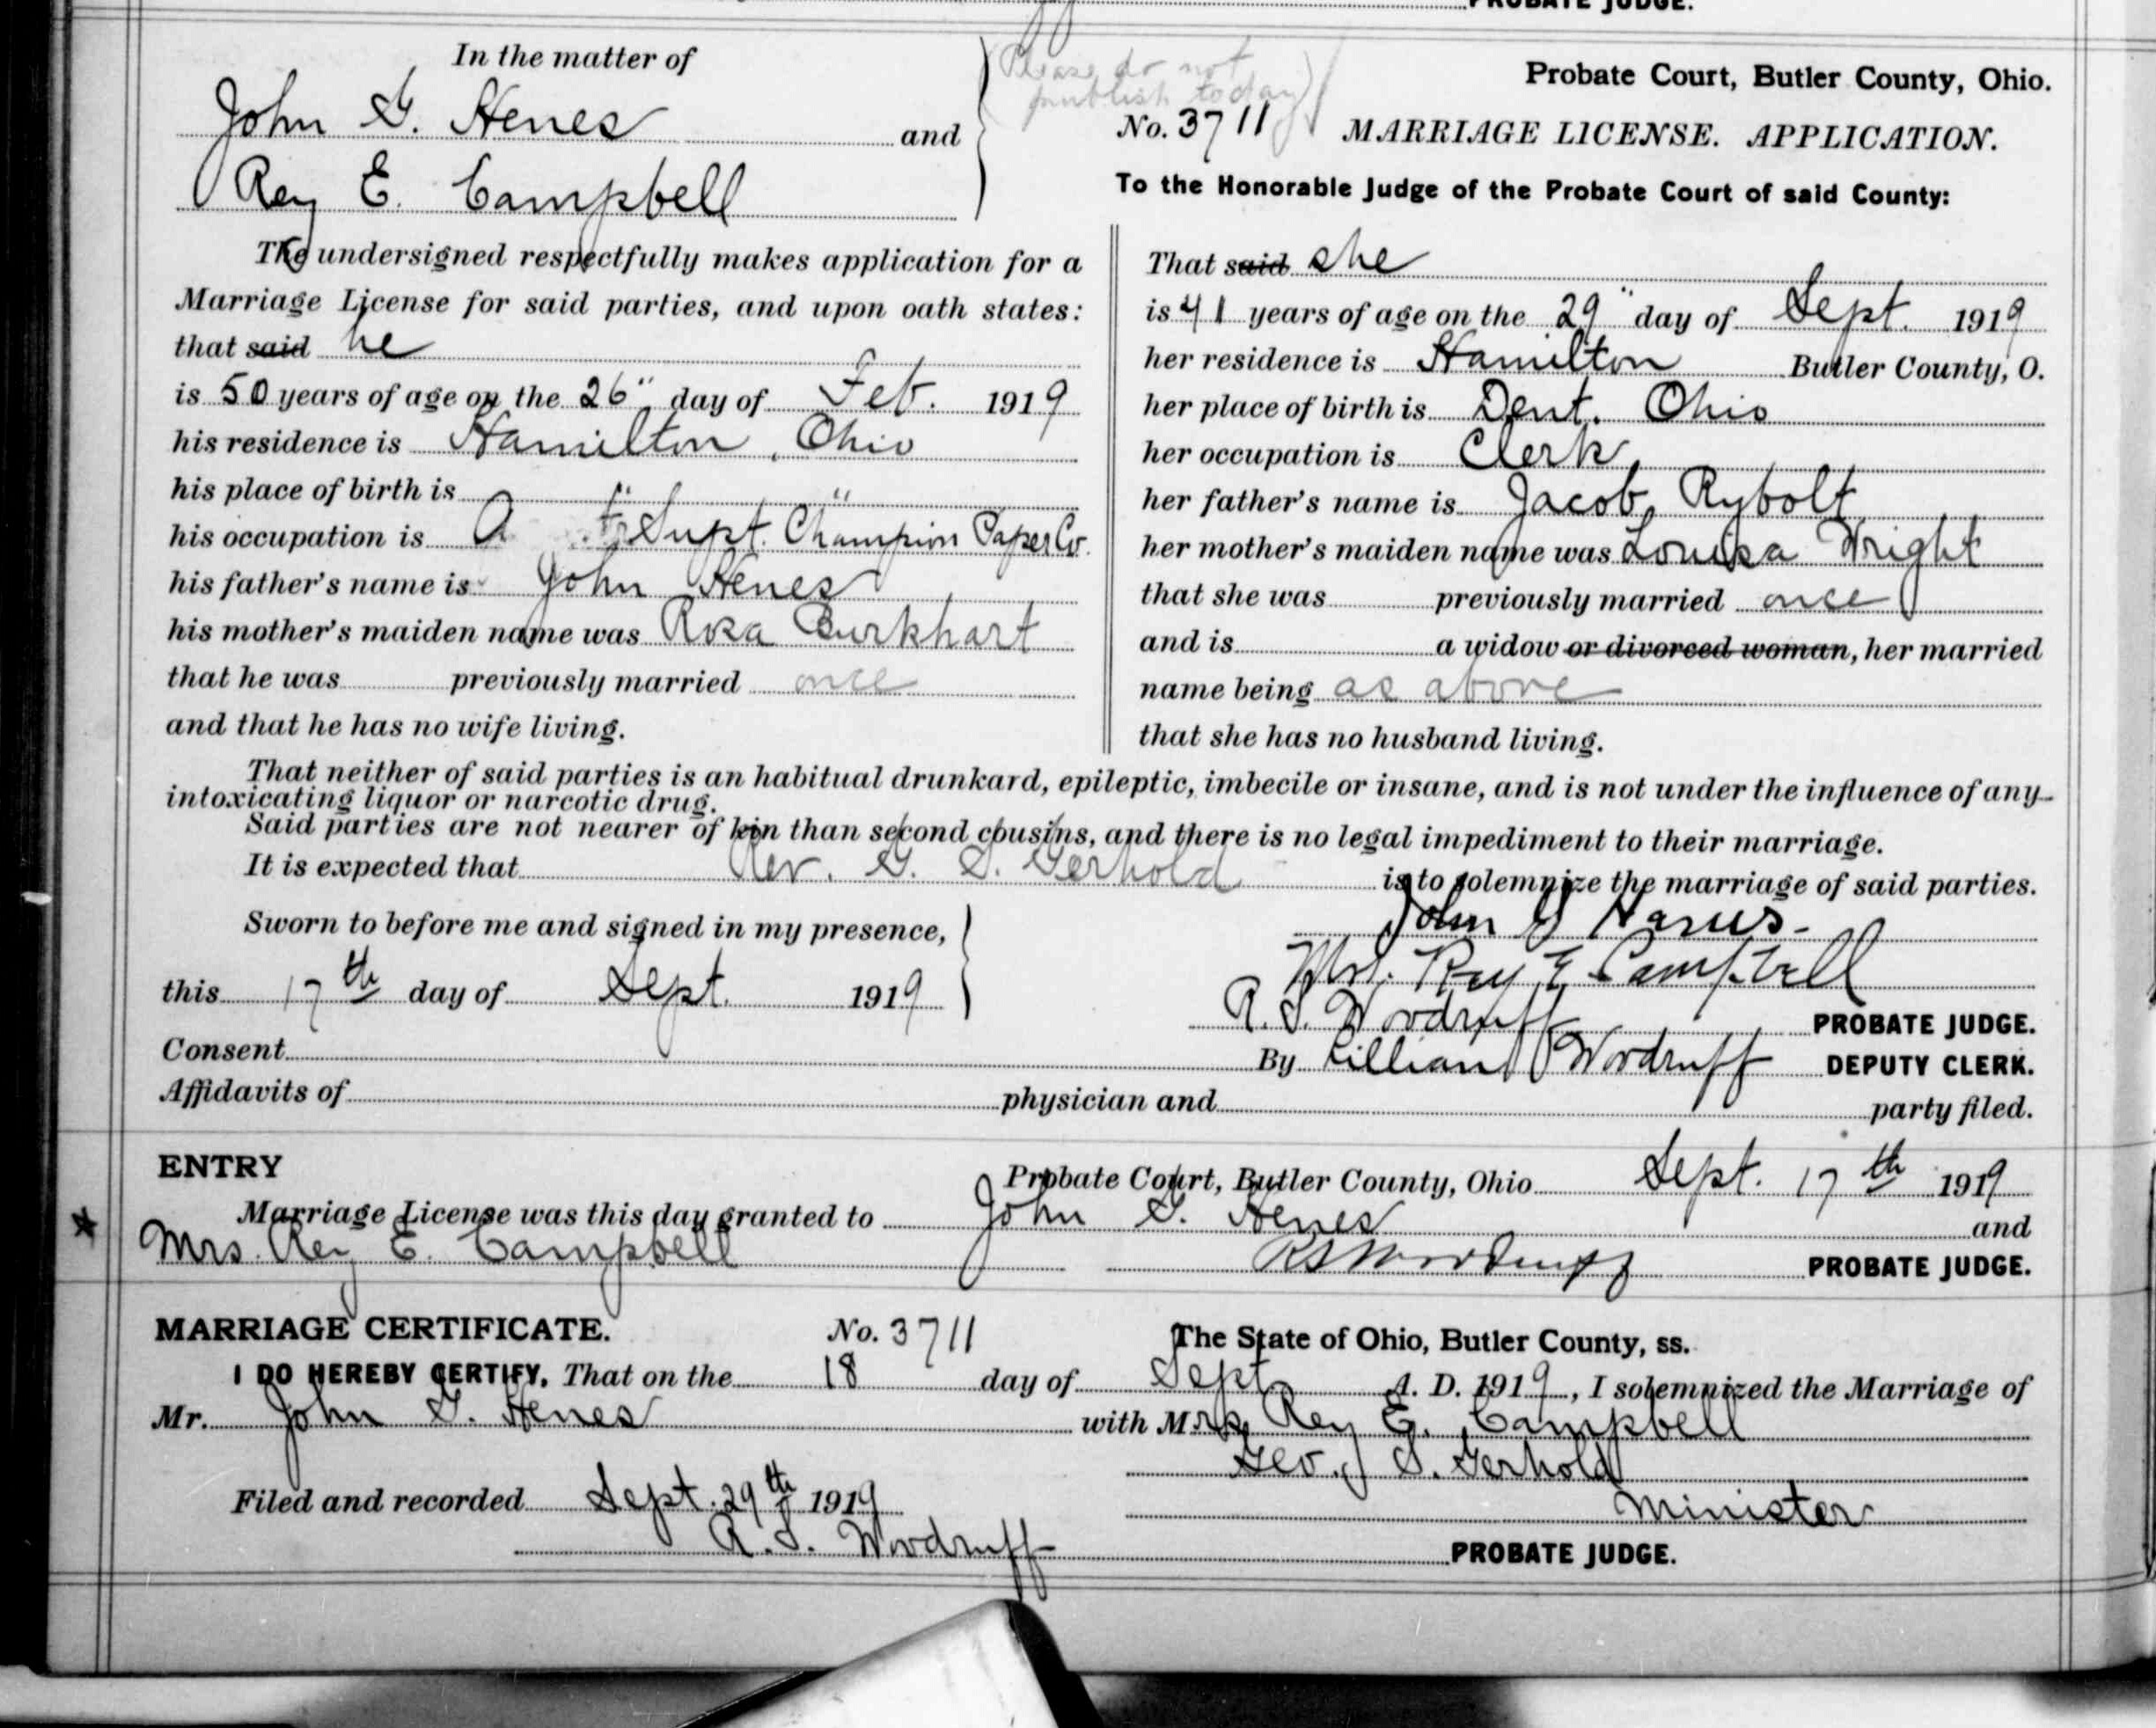 PROBATE JUDGE.
In the matter of
John G. Henes and
Rey E. Campbell
Please do not
publish today
Probate Court, Butler County, Ohio.
No. 3711 MARRIAGE LICENSE. APPLICATION.
To the Honorable Judge of the Probate Court of said County:
The undersigned respectfully makes application for a
Marriage License for said parties, and upon oath states:
that said he
is 50 years of age on the 26" day of Feb. 1919
his residence is Hamilton, Ohio
his place of birth is " "
his occupation is Supt. Champion Paper Co.
his father's name is John Henes
his mother's maiden name was Rosa Burkhart
that he was previously married once
and that he has no wife living.
That said she
is 41 years of age on the 29" day of Sept. 1919
her residence is Hamilton Butler County, O.
her place of birth is Dent. Ohio
her occupation is Clerk
her father's name is Jacob Rybolt
her mother's maiden name was Louisa Wright
that she was previously married once
and is a widow or divorced woman, her married
name being as above
that she has no husband living.
That neither of said parties is an habitual drunkard, epileptic, imbecile or insane, and is not under the influence of any
intoxicating liquor or narcotic drug.
Said parties are not nearer of kin than second cousins, and there is no legal impediment to their marriage.
It is expected that Rev. G. S. Gerhold is to solemnize the marriage of said parties.
Sworn to before me and signed in my presence,
this 17th day of Sept. 1919
John G Henes
Mrs. Rey E. Campbell
R. S. Woodruff PROBATE JUDGE.
Consent By Lillian Woodruff DEPUTY CLERK.
Affidavits of physician and party filed.
ENTRY Probate Court, Butler County, Ohio Sept. 17th 1919
Marriage License was this day granted to John G. Henes and
Mrs. Rey E. Campbell R S Woodruff PROBATE JUDGE.
MARRIAGE CERTIFICATE. No. 3711 The State of Ohio, Butler County, ss.
I DO HEREBY CERTIFY, That on the 18 day of Sept A. D. 1919, I solemnized the Marriage of
Mr. John G. Henes with Mrs. Rey E. Campbell
Geo. S. Gerhold
Minister
Filed and recorded Sept. 29th 1919
R. S. Woodruff PROBATE JUDGE.